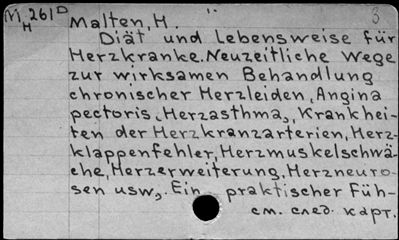 M 261 D
H
3
Malten, H.
Diät und Lebensweise für
Herzkranke. Neuzeitliche Wege
zur wirksamen Behandlung
chronischer Herzleiden, Angina
pectoris, Herzasthma, Krankhei-
ten der Herzkranzarterien, Herz-
klappenfehler, Herzmuskelschwä-
che, Herzerweiterung, Herzneuro-
sen usw. Ein praktischer Füh-
см. след. карт.